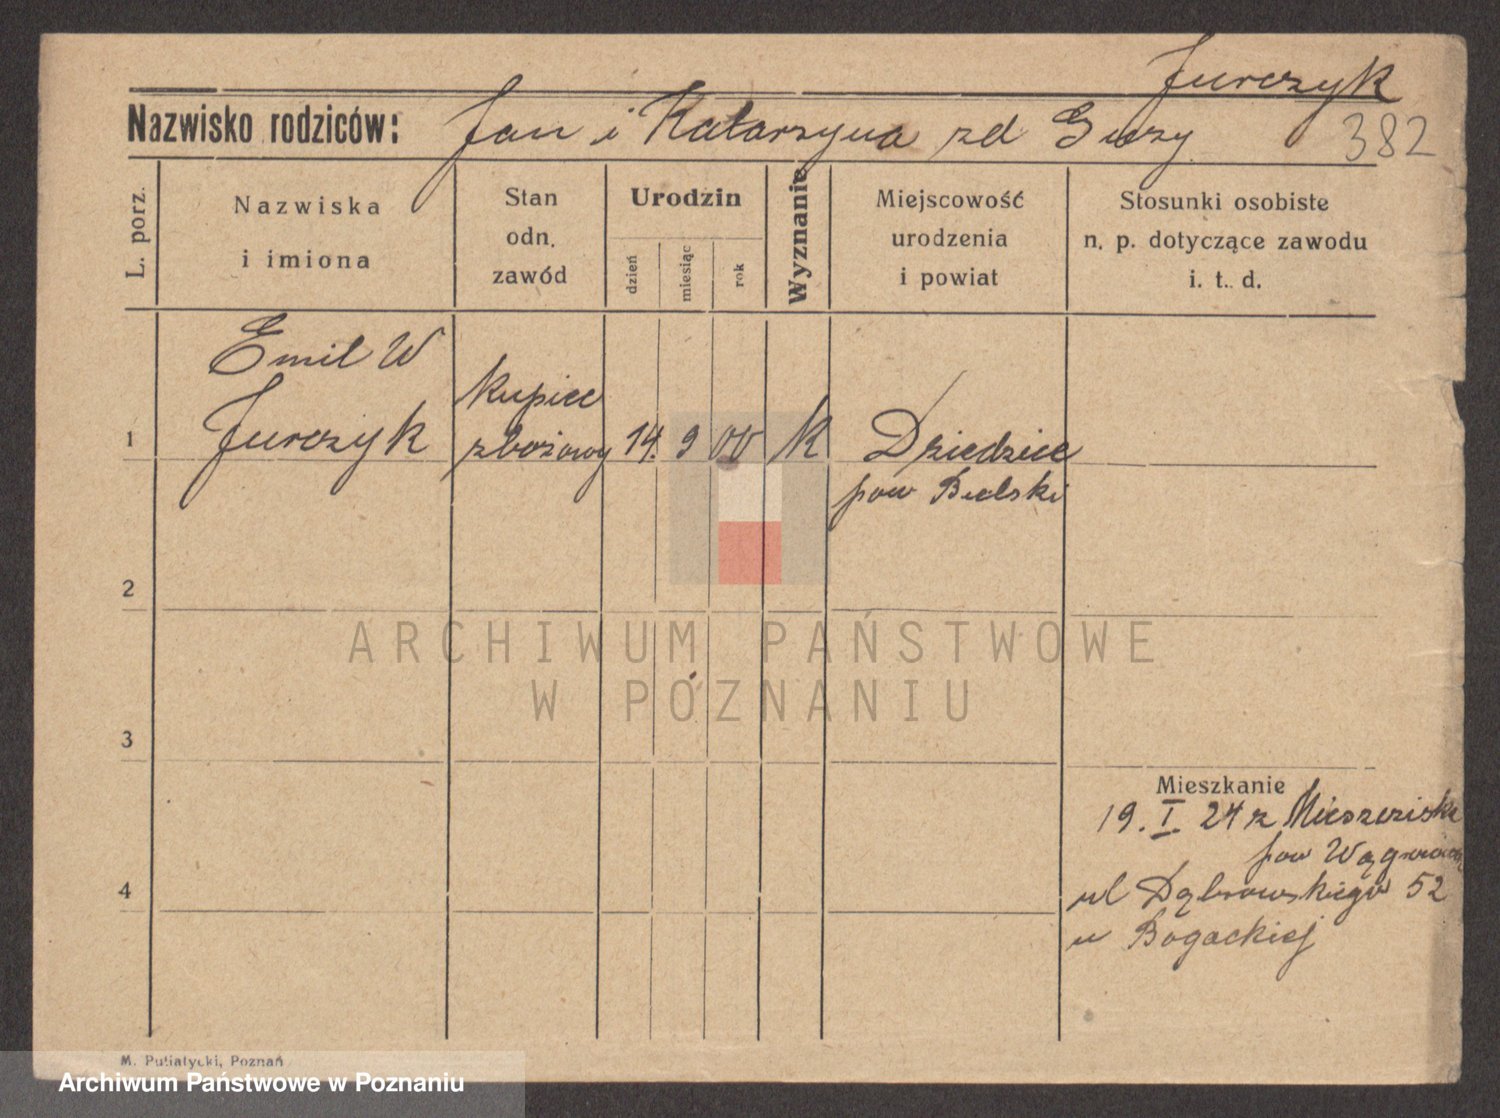 Jurczyk
Nazwisko rodziców: Jan i Katarzyna zd Guzy
382
L. porz.
Nazwiska
i imiona
Stan
odn.
zawód
Urodzin
dzień
miesiąc
rok
Wyznanie
Miejscowość
urodzenia
i powiat
Stosunki osobiste
n. p. dotyczące zawodu
i. t. d.
Emil W
1 Jurczyk
kupiec
zbożowy
14. 9 00 K
Dziedzice
pow Bielski
2
ARCHIWUM PAŃSTWOWE
W POZNANIU
3
Mieszkanie
19. I 24 z Mieszcziska
pow Wągrowiec
4
ul Dąbrowskiego 52
u Bogackiej
M. Putiatycki, Poznań
Archiwum Państwowe w Poznaniu